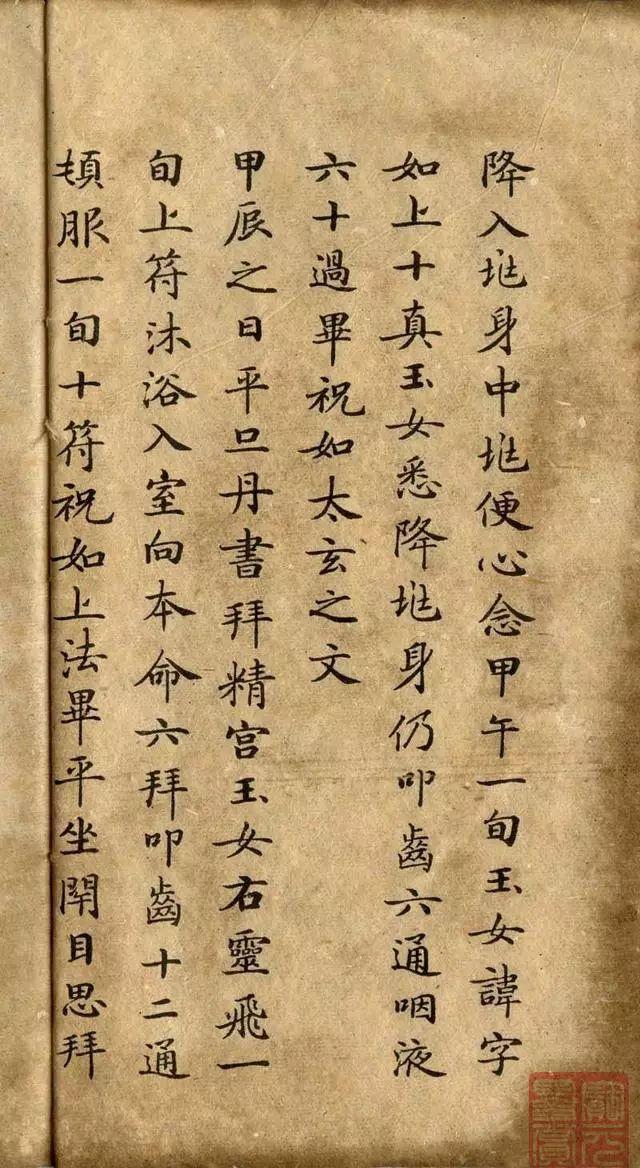 降入㘴身中㘴便心念甲午一旬玉女諱字
如上十真玉女悉降㘴身仍叩齒六通咽液
六十過畢祝如太玄之文
甲辰之日平旦丹書拜精宮玉女右靈飛一
旬上符沐浴入室向本命六拜叩齒十二通
頓服一旬十符祝如上法畢平坐閇目思拜